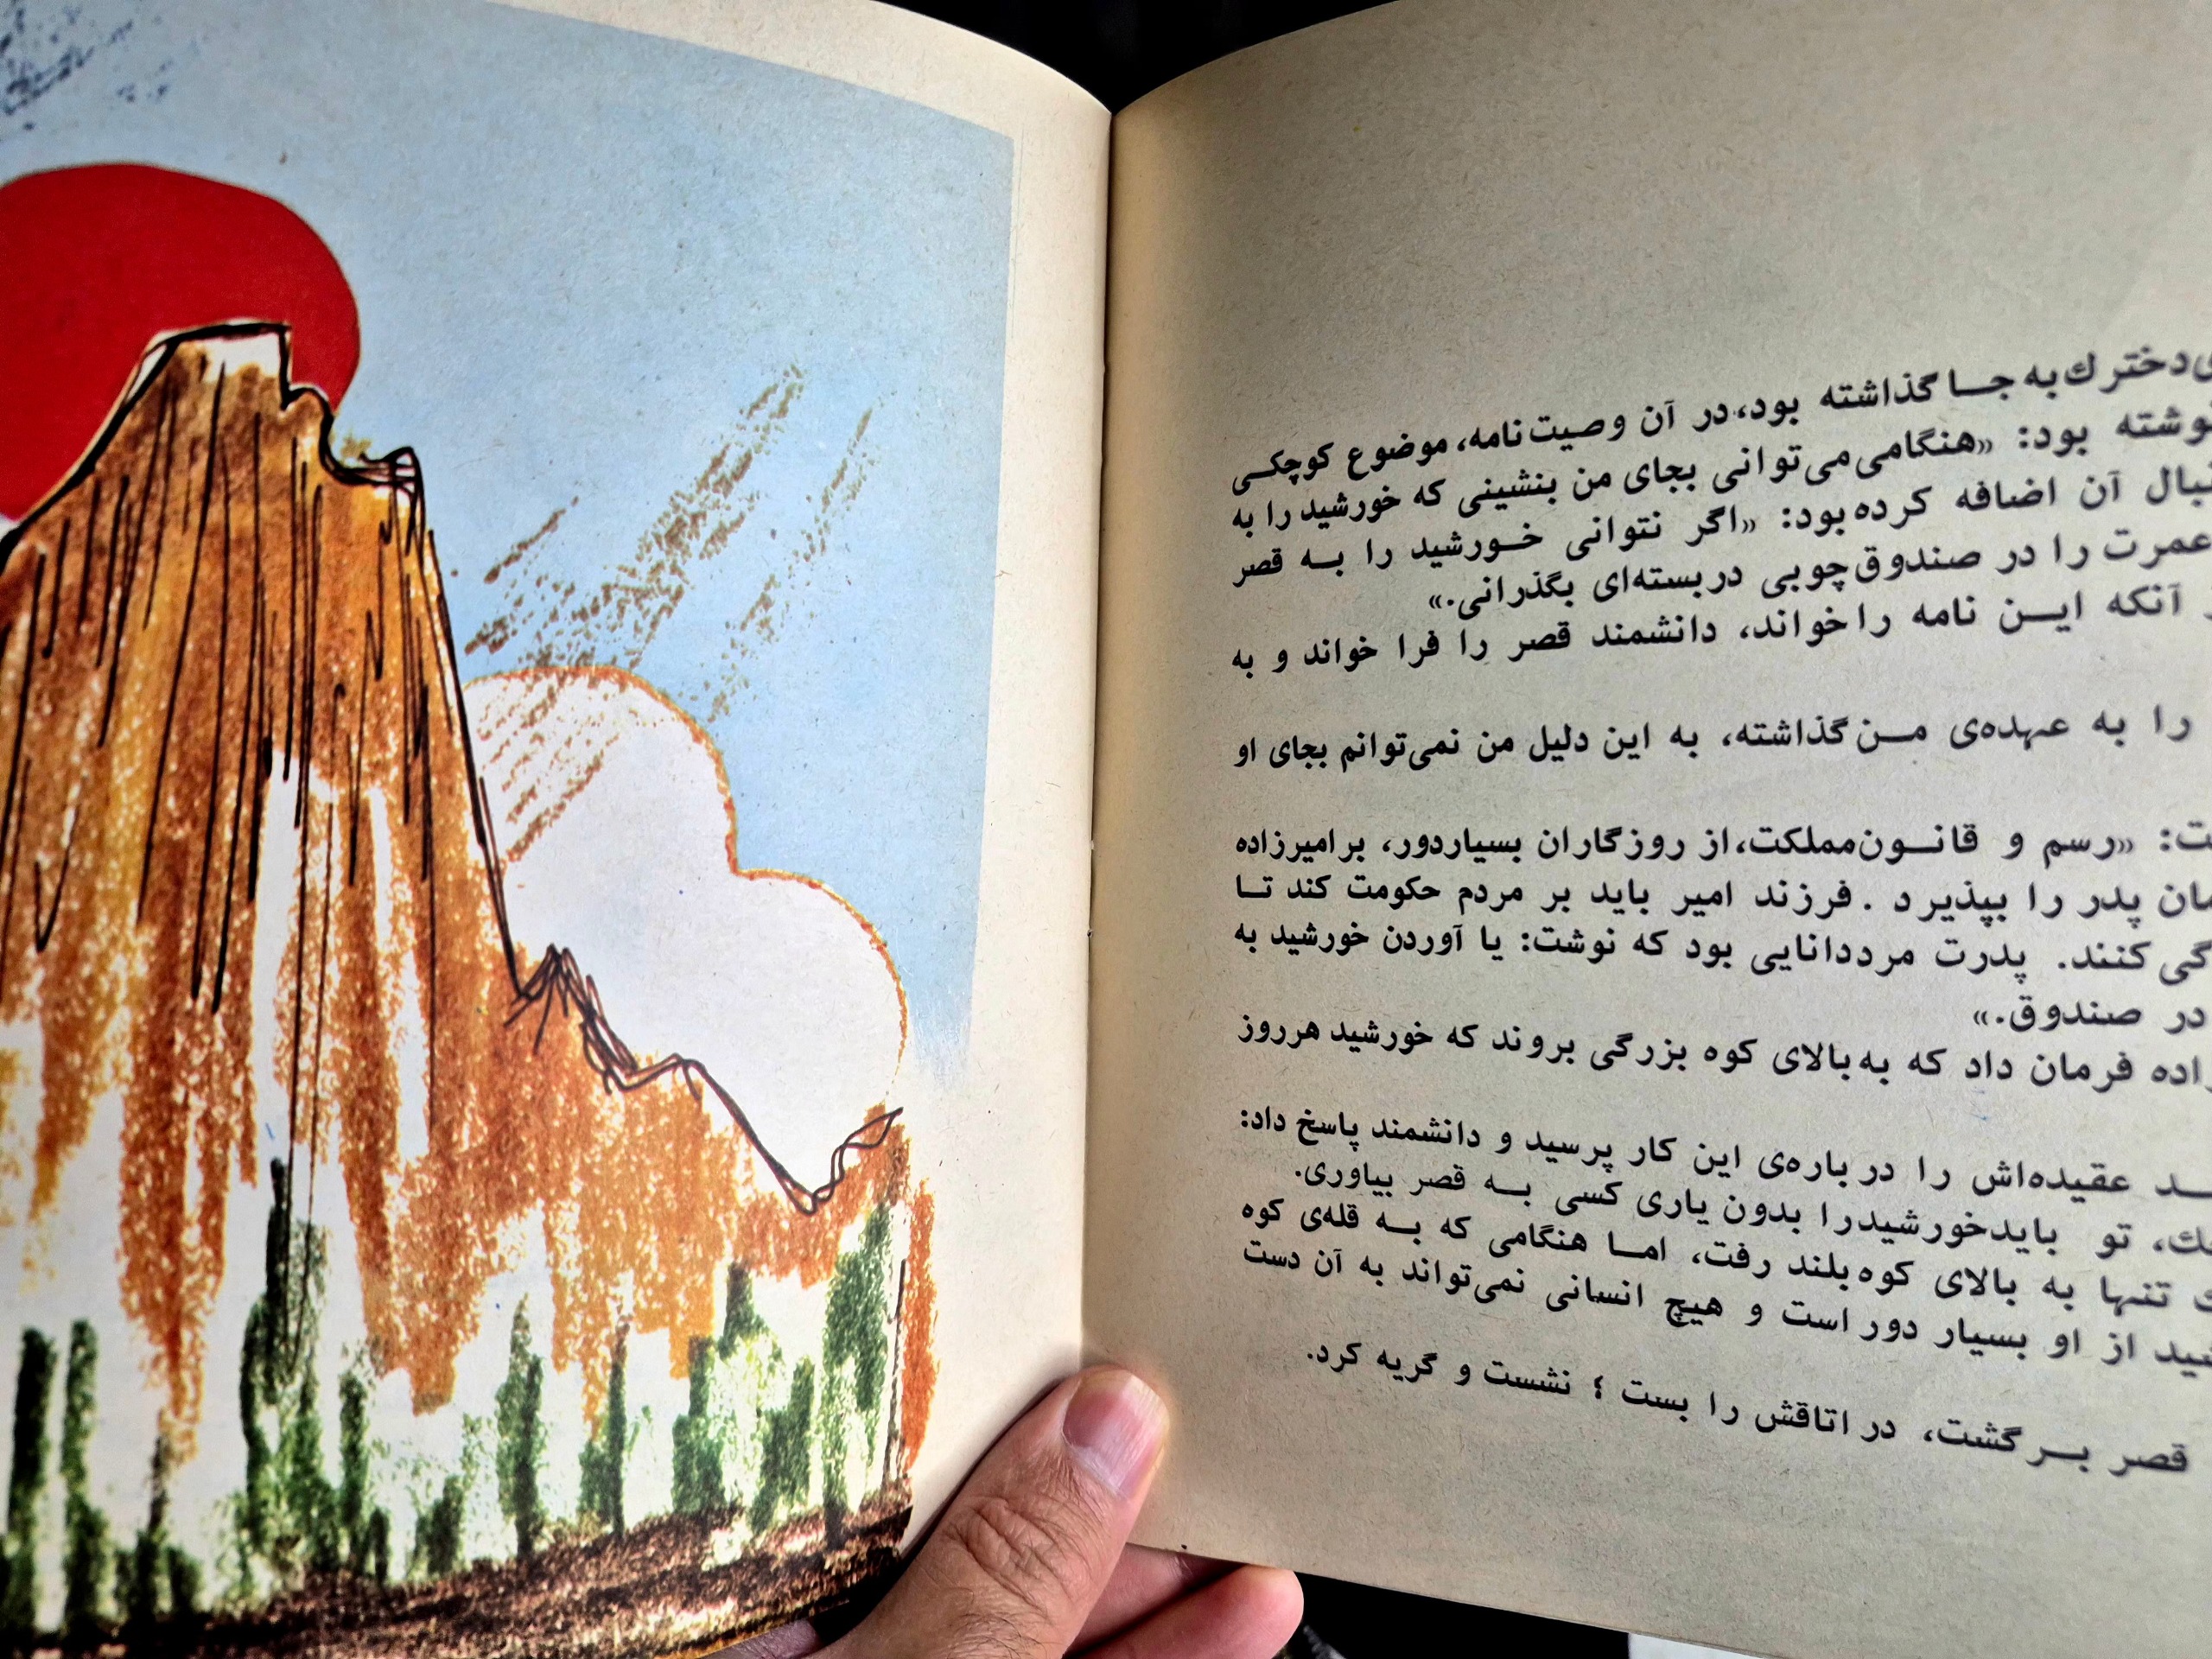 دخترك به جا گذاشته بود، در آن وصیت‌نامه، موضوع کوچکی
بود: «هنگامی می‌توانی بجای من بنشینی که خورشید را به
آن اضافه کرده بود: «اگر نتوانی خورشید را به قصر
عمرت را در صندوق چوبی دربسته‌ای بگذرانی.»
آنکه این نامه را خواند، دانشمند قصر را فرا خواند و به
را به عهده‌ی من گذاشته، به این دلیل من نمی‌توانم بجای او
«رسم و قانون مملکت، از روزگاران بسیار دور، بر امیرزاده
پدر را بپذیرد. فرزند امیر باید بر مردم حکومت کند تا
کنند. پدرت مرد دانایی بود که نوشت: یا آوردن خورشید به
در صندوق.»
فرمان داد که به بالای کوه بزرگی بروند که خورشید هر روز
عقیده‌اش را در باره‌ی این کار پرسید و دانشمند پاسخ داد:
تو باید خورشید را بدون یاری کسی به قصر بیاوری.
تنها به بالای کوه بلند رفت، اما هنگامی که به قله‌ی کوه
از او بسیار دور است و هیچ انسانی نمی‌تواند به آن دست
قصر برگشت، در اتاقش را بست ؛ نشست و گریه کرد.